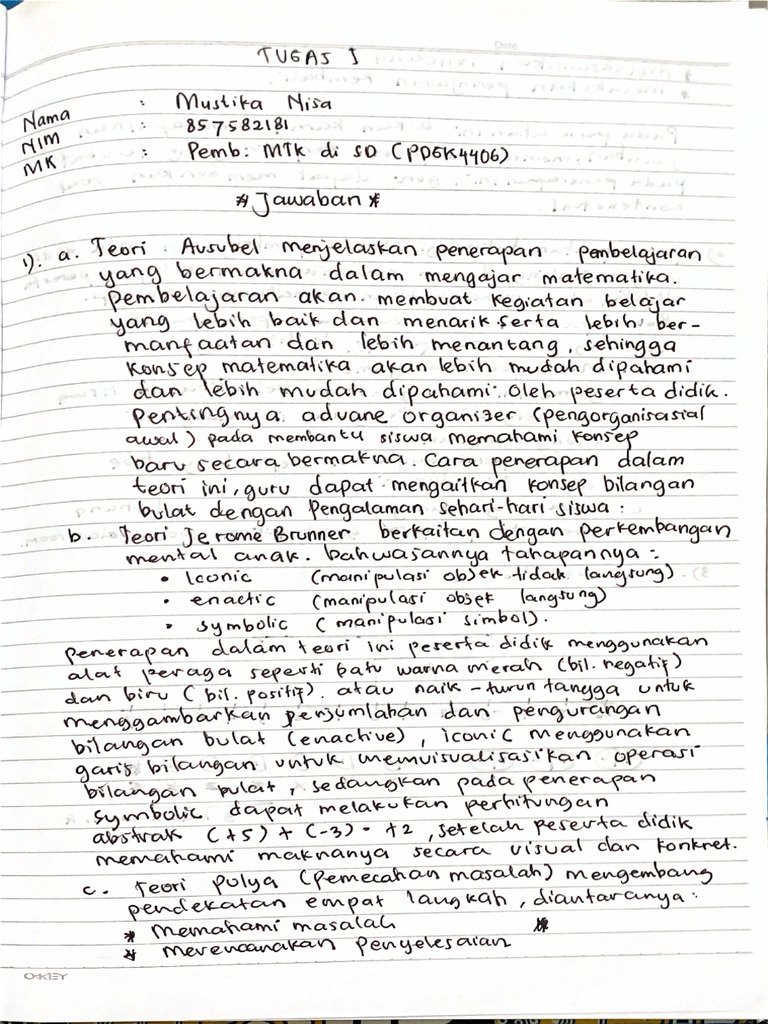 Date
TUGAS I
Nama : Mustika Nisa
NIM : 857582181
MK : Pemb: MTK di SD (PDGK4406)
*Jawaban*
1). a. Teori Ausubel menjelaskan penerapan pembelajaran
yang bermakna dalam mengajar matematika.
Pembelajaran akan membuat kegiatan belajar
yang lebih baik dan menarik serta lebih ber-
manfaatan dan lebih menantang, sehingga
konsep matematika akan lebih mudah dipahami
dan lebih mudah dipahami oleh peserta didik.
Pentingnya advane organizer (pengorganisasial
awal) pada membantu siswa memahami konsep
baru secara bermakna. Cara penerapan dalam
teori ini, guru dapat mengaitkan konsep bilangan
bulat dengan Pengalaman sehari-hari siswa:
b. Teori Jerome Brunner berkaitan dengan perkembangan
mental anak. bahwasannya tahapannya:
• Iconic (manipulasi objek tidak langsung).
• enactic (manipulasi objek langsung)
• symbolic (manipulasi simbol).
penerapan dalam teori ini peserta didik menggunakan
alat peraga seperti batu warna merah (bil. negatif)
dan biru (bil. positif). atau naik-turun tangga untuk
menggambarkan penjumlahan dan pengurangan
bilangan bulat (enactive), iconic menggunakan
garis bilangan untuk memvisualisasikan operasi
bilangan bulat, sedangkan pada penerapan
symbolic dapat melakukan perhitungan
abstrak (+5) + (-3) = +2, setelah peserta didik
memahami maknanya secara visual dan konkret.
c. Teori Polya (pemecahan masalah) mengembang
pendekatan empat langkah, diantaranya:
* memahami masalah
* merencanakan penyelesaian
O-KEY